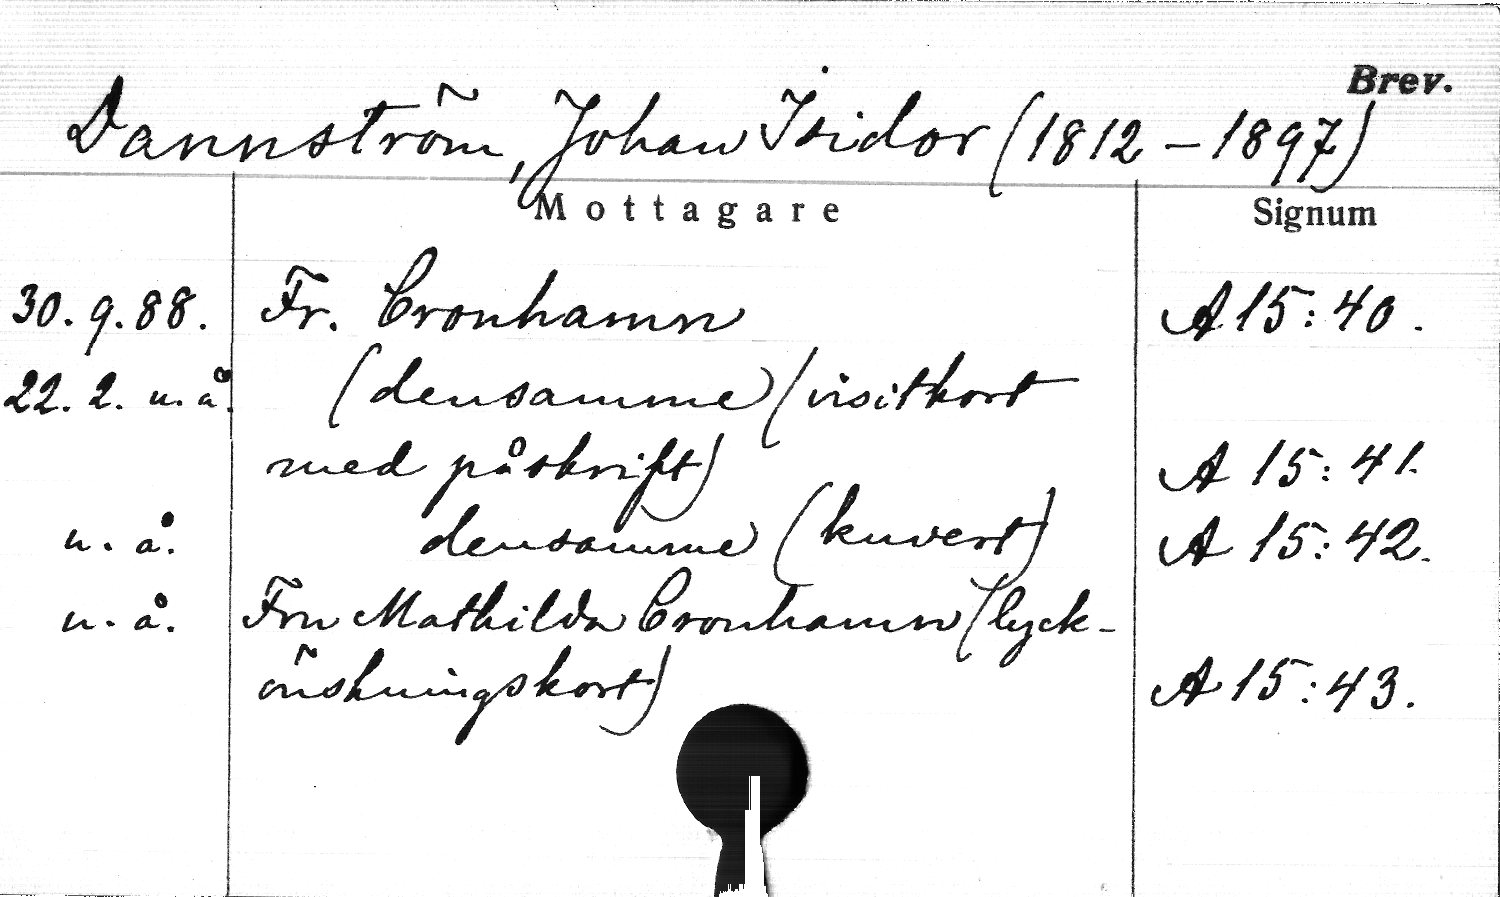 Brev.
Dannström, Johan Isidor (1812 – 1897)
Mottagare Signum
30. 9. 88. Fr. Cronhamn A 15:40.
22. 2. u. å. (densamme) (visitkort
med påskrift) A 15:41.
u. å. densamme (kuvert) A 15:42.
u. å. Fru Mathilda Cronhamn (lyck-
önskningskort) A 15:43.